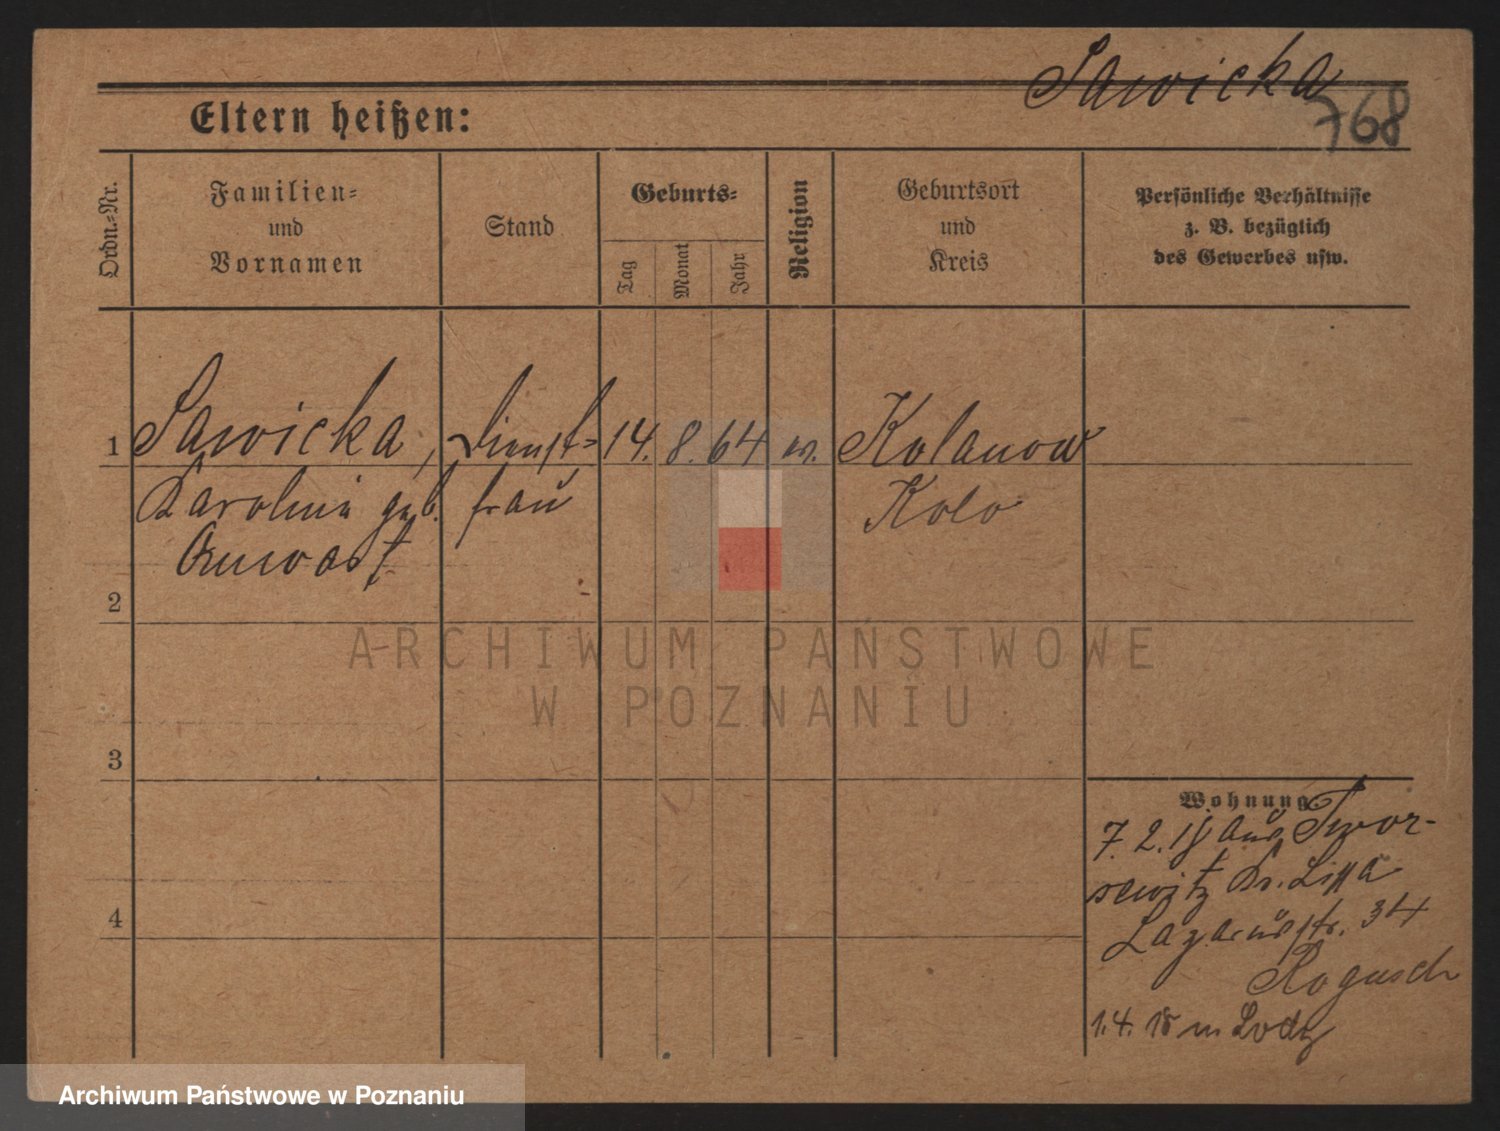 Sawicka
768
Eltern heißen:
Ordn.-Nr.
Familien-
und
Vornamen
Stand
Geburts-
Tag
Monat
Jahr
Religion
Geburtsort
und
Kreis
Persönliche Verhältnisse
z. B. bezüglich
des Gewerbes usw.
1 Sawicka, Dienst- 14. 8. 64 ev. Kolanow
Karoline geb. frau Kolo
2
3
4
ARCHIWUM PAŃSTWOWE
W POZNANIU
Wohnung.
7. 2. 18 aus Twor-
sewitz Kr. Lissa
Lazarusstr. 34
Rogusch
1.4. 18 n Lodz
Archiwum Państwowe w Poznaniu